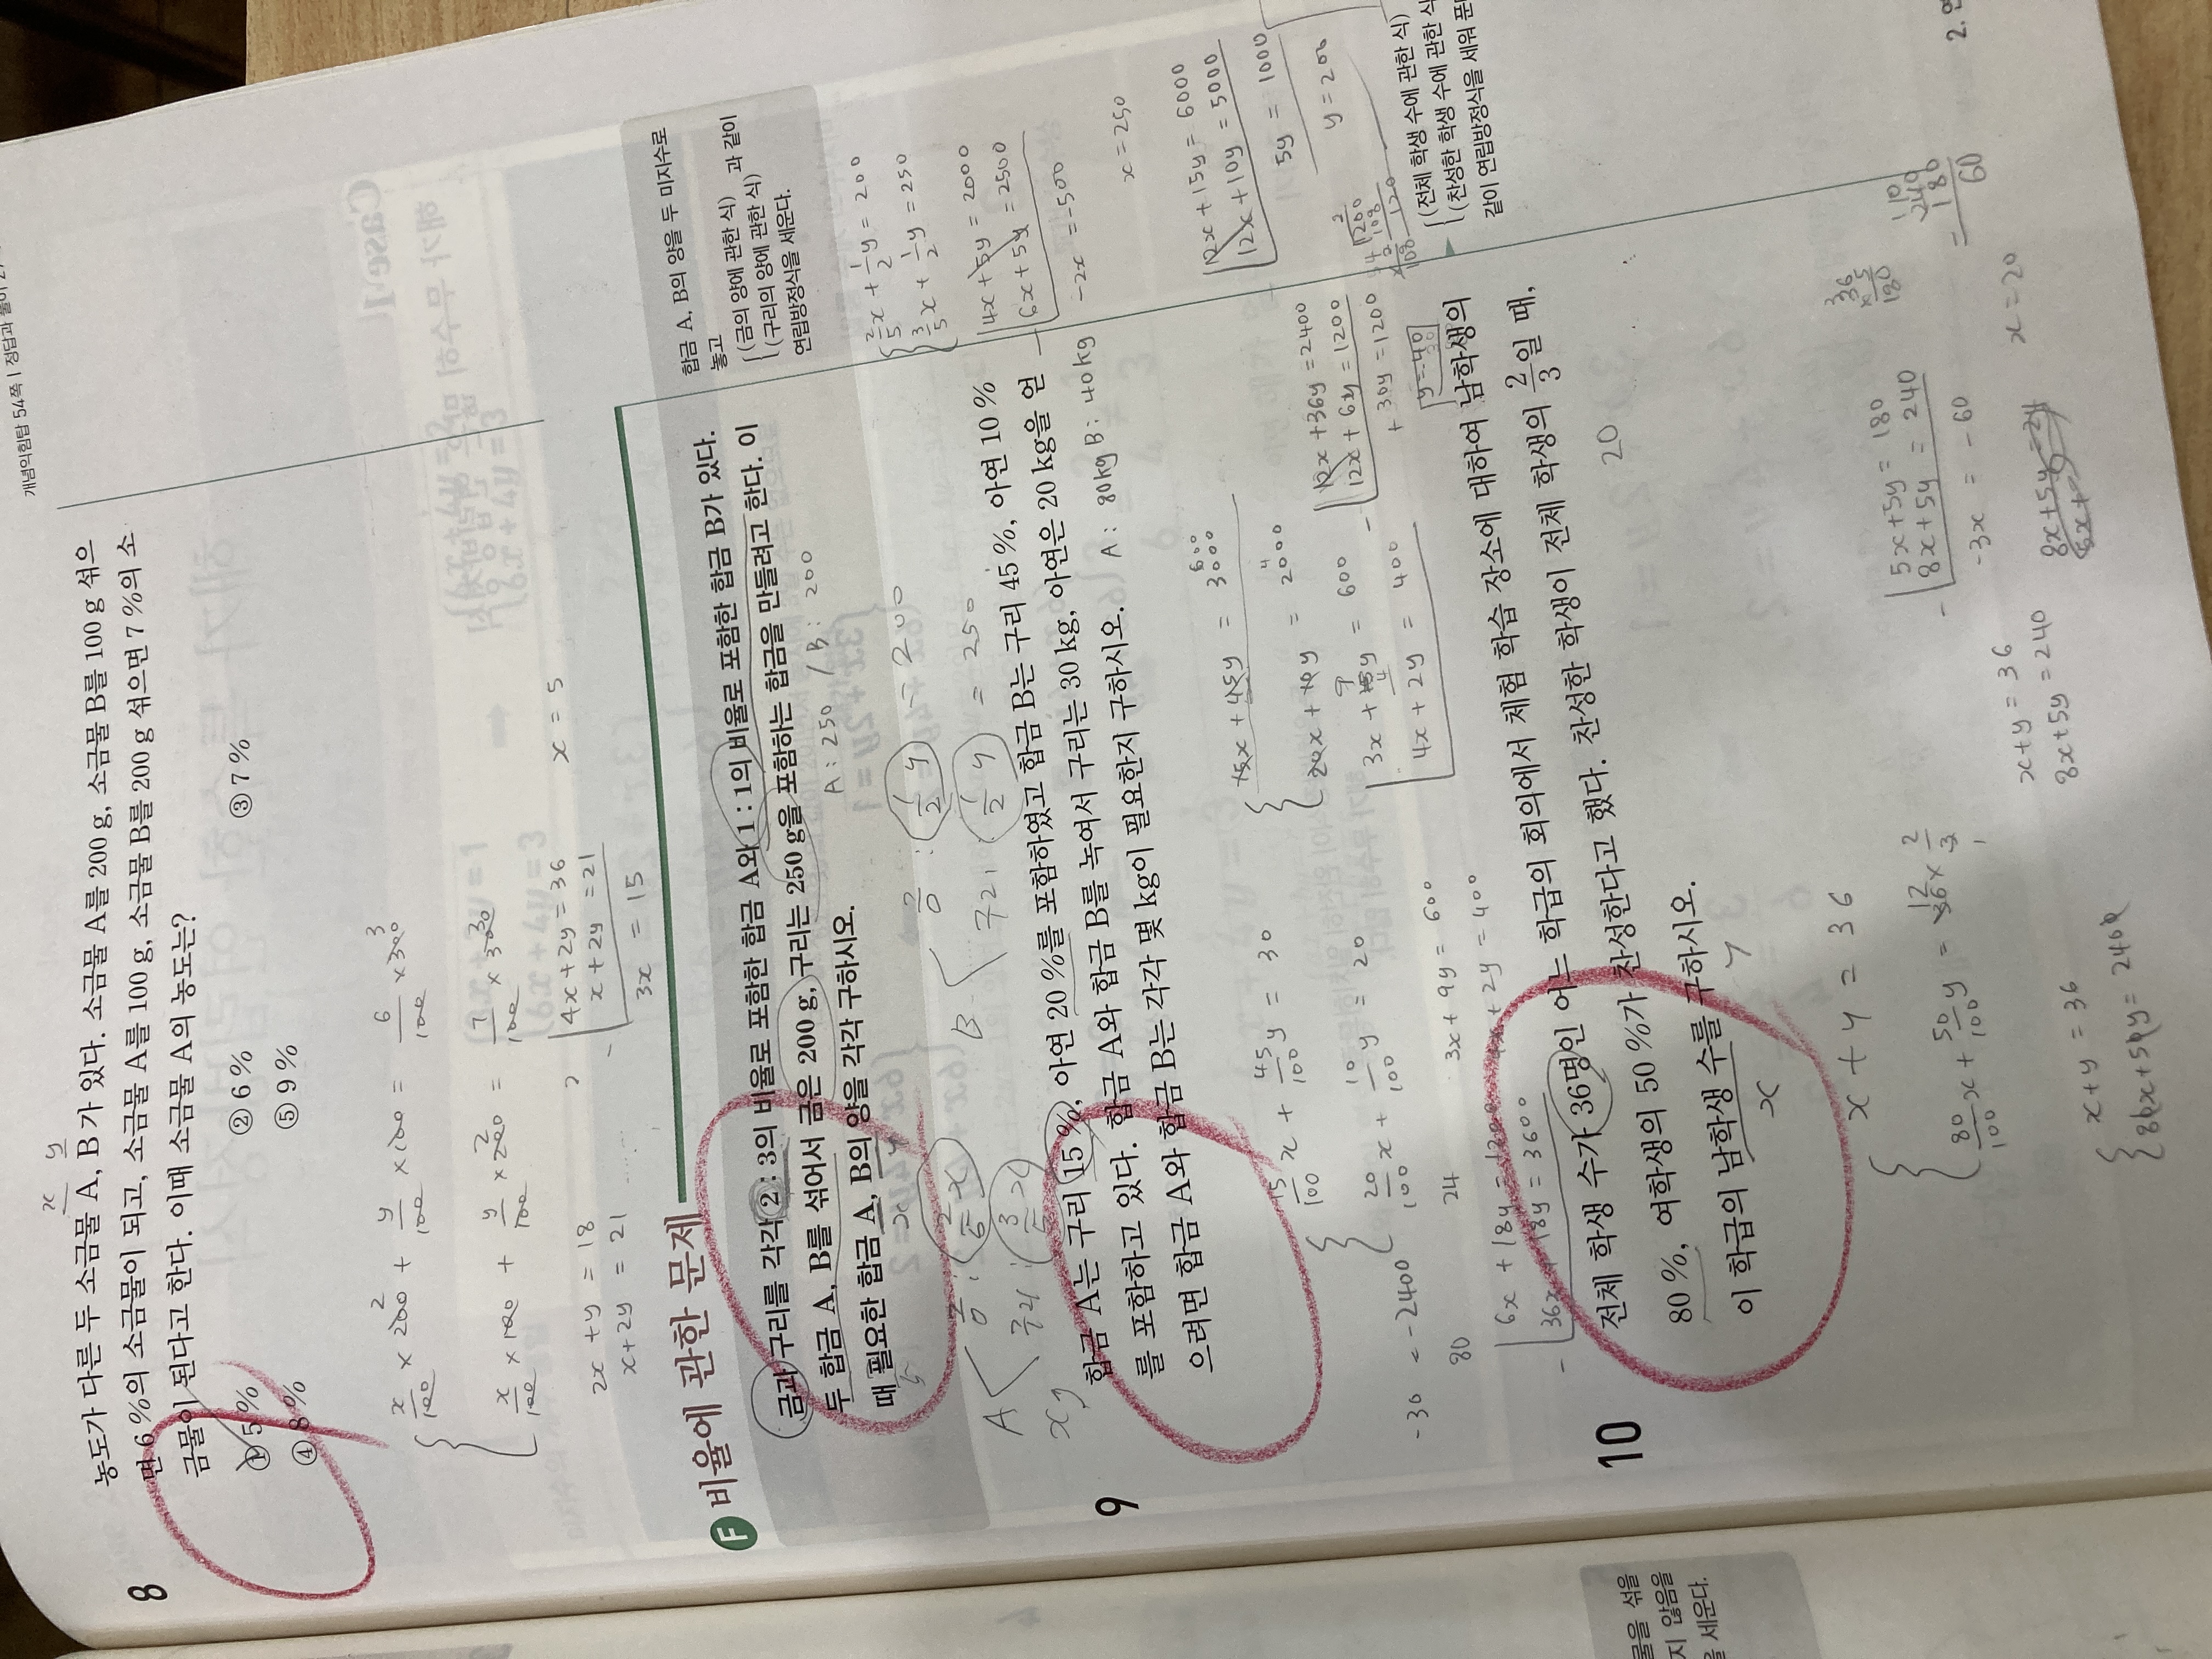 개념익힘탑 54쪽 | 정답과 풀이
8
x y
농도가 다른 두 소금물 A, B가 있다. 소금물 A를 200 g, 소금물 B를 100 g 섞으
면 6 %의 소금물이 되고, 소금물 A를 100 g, 소금물 B를 200 g 섞으면 7 %의 소
금물이 된다고 한다. 이때 소금물 A의 농도는?
① 5 % ② 6 % ③ 7 %
④ 8 % ⑤ 9 %
x/100 × 200 + y/100 × 100 = 6/100 × 300
x/100 × 100 + y/100 × 200 = 7/100 × 300
2x + y = 18
x + 2y = 21
4x + 2y = 36
x + 2y = 21
3x = 15
x = 5
F 비율에 관한 문제
금과 구리를 각각 2 : 3의 비율로 포함한 합금 A와 1 : 1의 비율로 포함한 합금 B가 있다.
두 합금 A, B를 섞어서 금은 200 g, 구리는 250 g을 포함하는 합금을 만들려고 한다. 이
때 필요한 합금 A, B의 양을 각각 구하시오.
A : 250 / B : 200
합금 A, B의 양을 두 미지수로
놓고
(금의 양에 관한 식)
(구리의 양에 관한 식) 과 같이
연립방정식을 세운다.
A 금 : 2/5 x
구리 : 3/5 x
B 금 : 1/2 y = 200
구리 1/2 y = 250
2/5 x + 1/2 y = 200
3/5 x + 1/2 y = 250
4x + 5y = 2000
6x + 5y = 2500
-2x = -500
x = 250
9
합금 A는 구리 15 %, 아연 20 %를 포함하였고 합금 B는 구리 45 %, 아연 10 %
를 포함하고 있다. 합금 A와 합금 B를 녹여서 구리는 30 kg, 아연은 20 kg을 얻
으려면 합금 A와 합금 B는 각각 몇 kg이 필요한지 구하시오.
A : 80kg B : 40kg
15/100 x + 45/100 y = 30
20/100 x + 10/100 y = 20
15x + 45y = 3000
20x + 10y = 2000
3x + 9y = 600
4x + 2y = 400
3x + 9y = 600
4x + 2y = 400
12x + 36y = 2400
12x + 6y = 1200
+ 30y = 1200
y = 40
6x + 18y = 1200
36x + 18y = 3600
-30 = -2400
80
24
12x + 15y = 6000
12x + 10y = 5000
5y = 1000
y = 200
10
전체 학생 수가 36명인 어느 학급의 회의에서 체험 학습 장소에 대하여 남학생의
80 %, 여학생의 50 %가 찬성한다고 했다. 찬성한 학생이 전체 학생의 2/3일 때,
이 학급의 남학생 수를 구하시오.
20
x y
(전체 학생 수에 관한 식)
(찬성한 학생 수에 관한 식
같이 연립방정식을 세워 푼
x + y = 36
80/100 x + 50/100 y = 36 × 2/3
x + y = 36
80x + 50y = 2400
x + y = 36
8x + 5y = 240
5x + 5y = 180
8x + 5y = 240
-3x = -60
x = 20
36
× 5
180
240
180
60
물을 섞을
지 않음을
을 세운다.